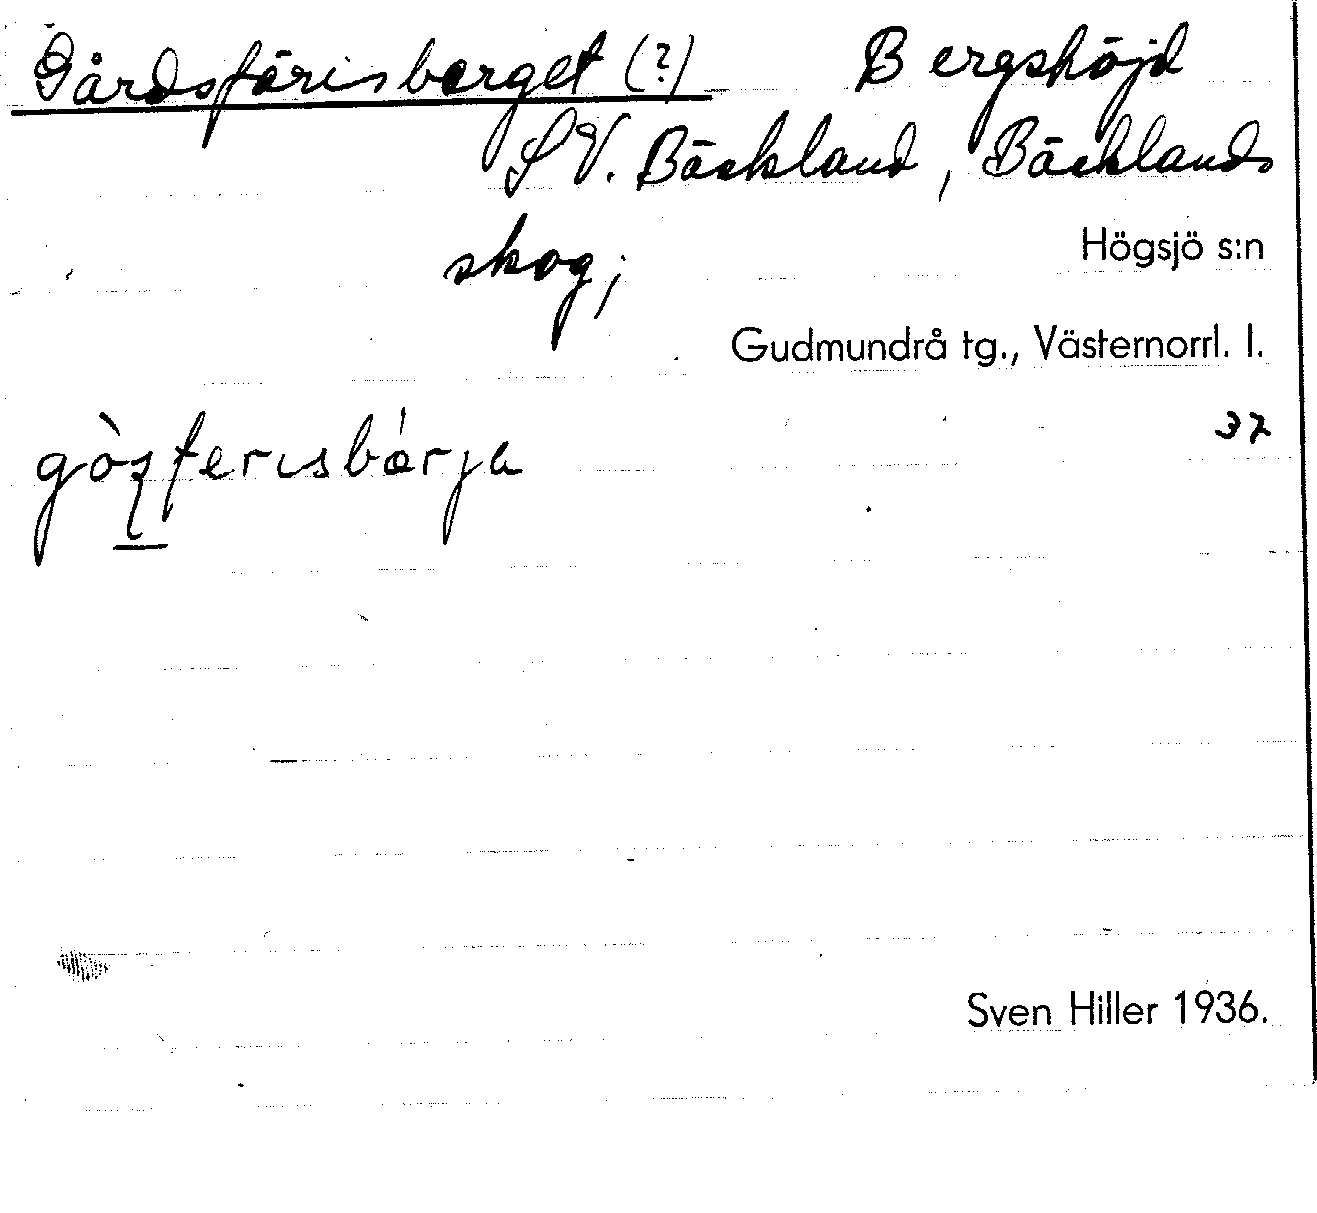 Gårdsförisberget (?) Bergshöjd
SV. Bäckland, Bäcklands
skog;
Högsjö s:n
Gudmundrå tg., Västernorrl. l.
37
Sven Hiller 1936.